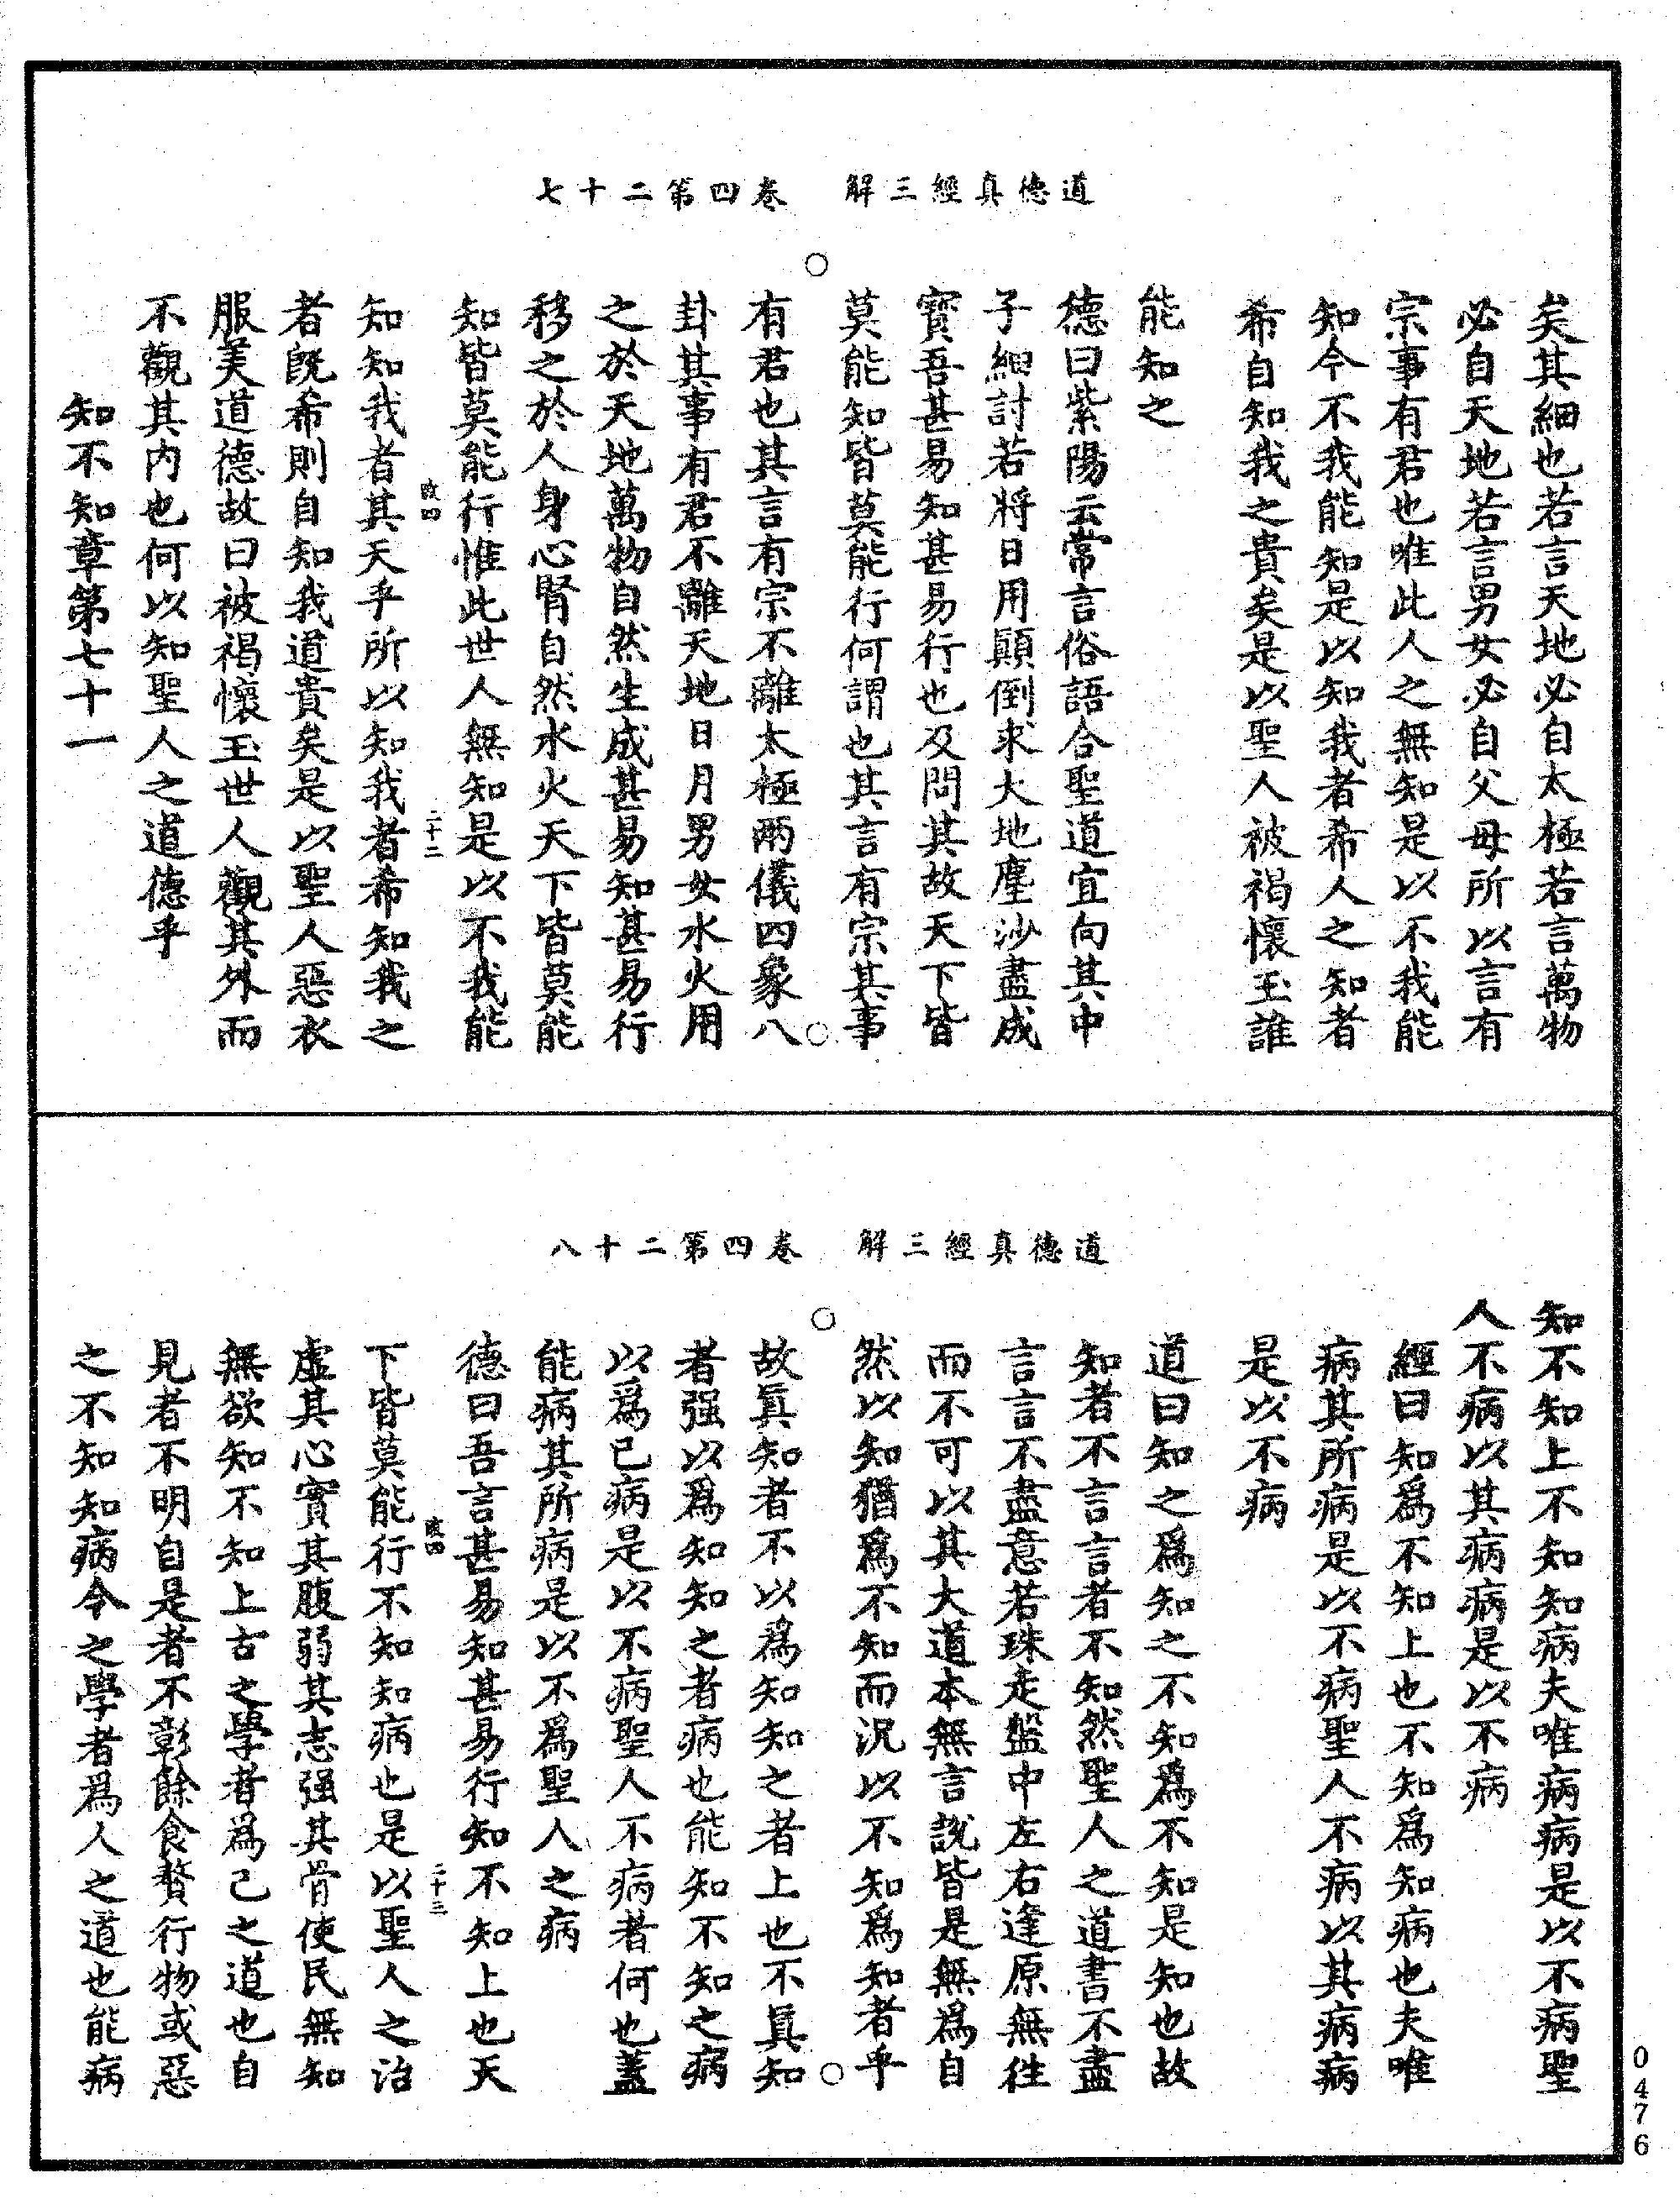 道德真經三解　卷四第二十七
矣其細也若言天地必自太極若言萬物
必自天地若言男女必自父母所以言有
宗事有君也唯此人之無知是以不我能
知今不我能知是以知我者希人之知者
希自知我之貴矣是以聖人被褐懷玉誰
能知之
德曰紫陽云常言俗語合聖道宜向其中
子細討若將日用顛倒求大地塵沙盡成
寶吾甚易知甚易行也及問其故天下皆
莫能知皆莫能行何謂也其言有宗其事
有君也其言有宗不離太極兩儀四象八
卦其事有君不離天地日月男女水火用
之於天地萬物自然生成甚易知甚易行
移之於人身心腎自然水火天下皆莫能
知皆莫能行惟此世人無知是以不我能
二十二
知知我者其天乎所以知我者希知我之
者既希則自知我道貴矣是以聖人惡衣
服美道德故曰被褐懷玉世人觀其外而
不觀其内也何以知聖人之道德乎
知不知章第七十一
道德真經三解　卷四第二十八
知不知上不知知病夫唯病病是以不病聖
人不病以其病病是以不病
經曰知爲不知上也不知爲知病也夫唯
病其所病是以不病聖人不病以其病病
是以不病
道曰知之爲知之不知爲不知是知也故
知者不言言者不知然聖人之道書不盡
言言不盡意若珠走盤中左右逢原無徃
而不可以其大道本無言說皆是無爲自
然以知猶爲不知而況以不知爲知者乎
故眞知者不以爲知知之者上也不眞知
者强以爲知知之者病也能知不知之病
以爲已病是以不病聖人不病者何也蓋
能病其所病是以不爲聖人之病
德曰吾言甚易知甚易行知不知上也天
二十三
下皆莫能行不知知病也是以聖人之治
虛其心實其腹弱其志强其骨使民無知
無欲知不知上古之學者爲己之道也自
見者不明自是者不彰餘食贅行物或惡
之不知知病今之學者爲人之道也能病
0476